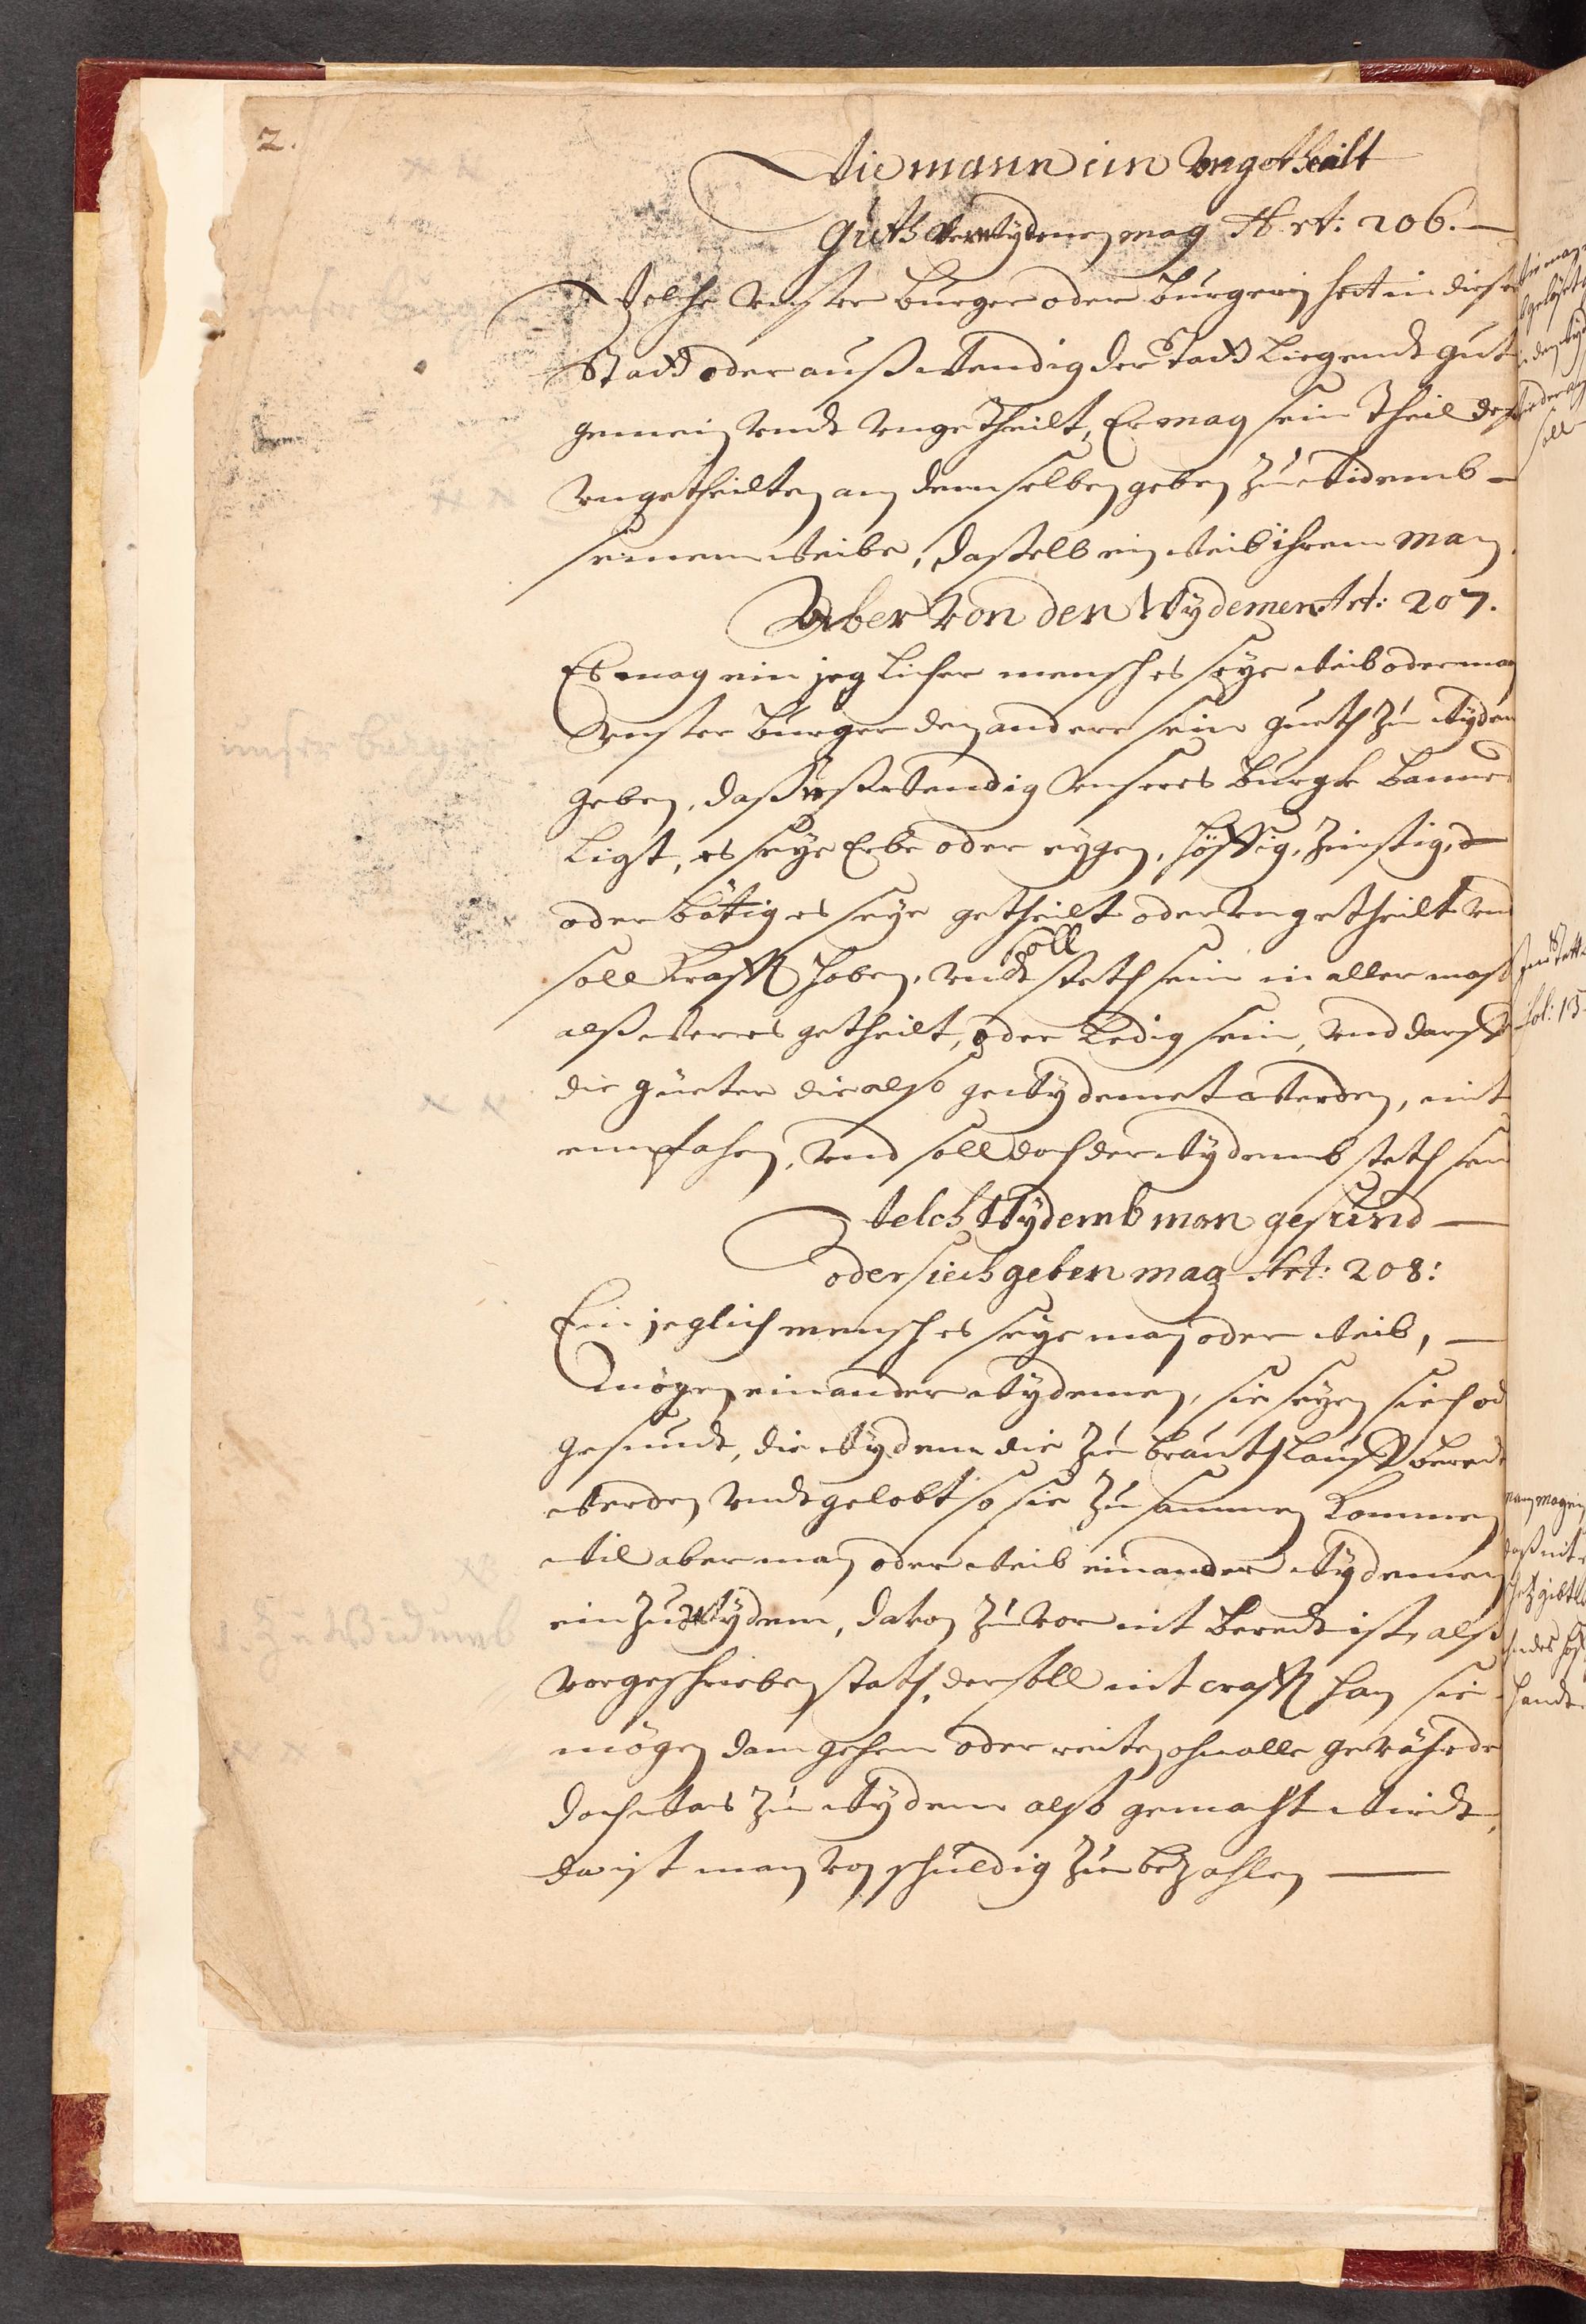 2.
Wie mann ein Vngetheilt
Guth verwydmen mag Art: 206.
Welche Vnser Burger oder Burgerin hatt in dieser
Statt oder außwendig der Statt Liegendt gut
gemein vndt vngetheilt, Er mag sein Theil deß
vngetheilten an demselben geben zu widemb
seinem weibe, dasselb ein weib ihrem Man
Aber Von den Wydemen Art: 207.
Es mag ein jeglicher mensch es seye weib oder man
Vnser Burger den andern sein gueth zu wydem
geben, daß vßwendig Vnseres Burgk Banns
Ligt, es seye Erbe oder eygen, höffig, Zinstig,
oder bötig es seye getheilt oder vngetheilt vnd
soll Krafft haben, vndt soll steth sein in aller maß
alß wer es getheilt, oder Ledig sein, vnd darff
die güeter die also gewydemet werden, nit
empfahen, vnd soll doch der wydemb steth sein
Welch Wydemb man gesund
oder siech geben mag Art: 208:
Ein jeglich mensch es seye man oder weib,
mögen einander wydemen, sie seyen siech od
gesundt, die wydem die zu brauthlauff beredt
werden vndt gelobt so sie zusammen Kommen
wil aber man oder weib einander wydemen
ein Zuwydem, davon zuvor nit beredt ist, alß
vorgeschrieben stath, der soll nit crafft han sie
mögen dan gehen oder reiten ohn alle gevährde
doch was zu wydem also gemacht wirdt,
da ist man von schuldig zu bezahlen
unser burger
zu Widemb
fol: 15